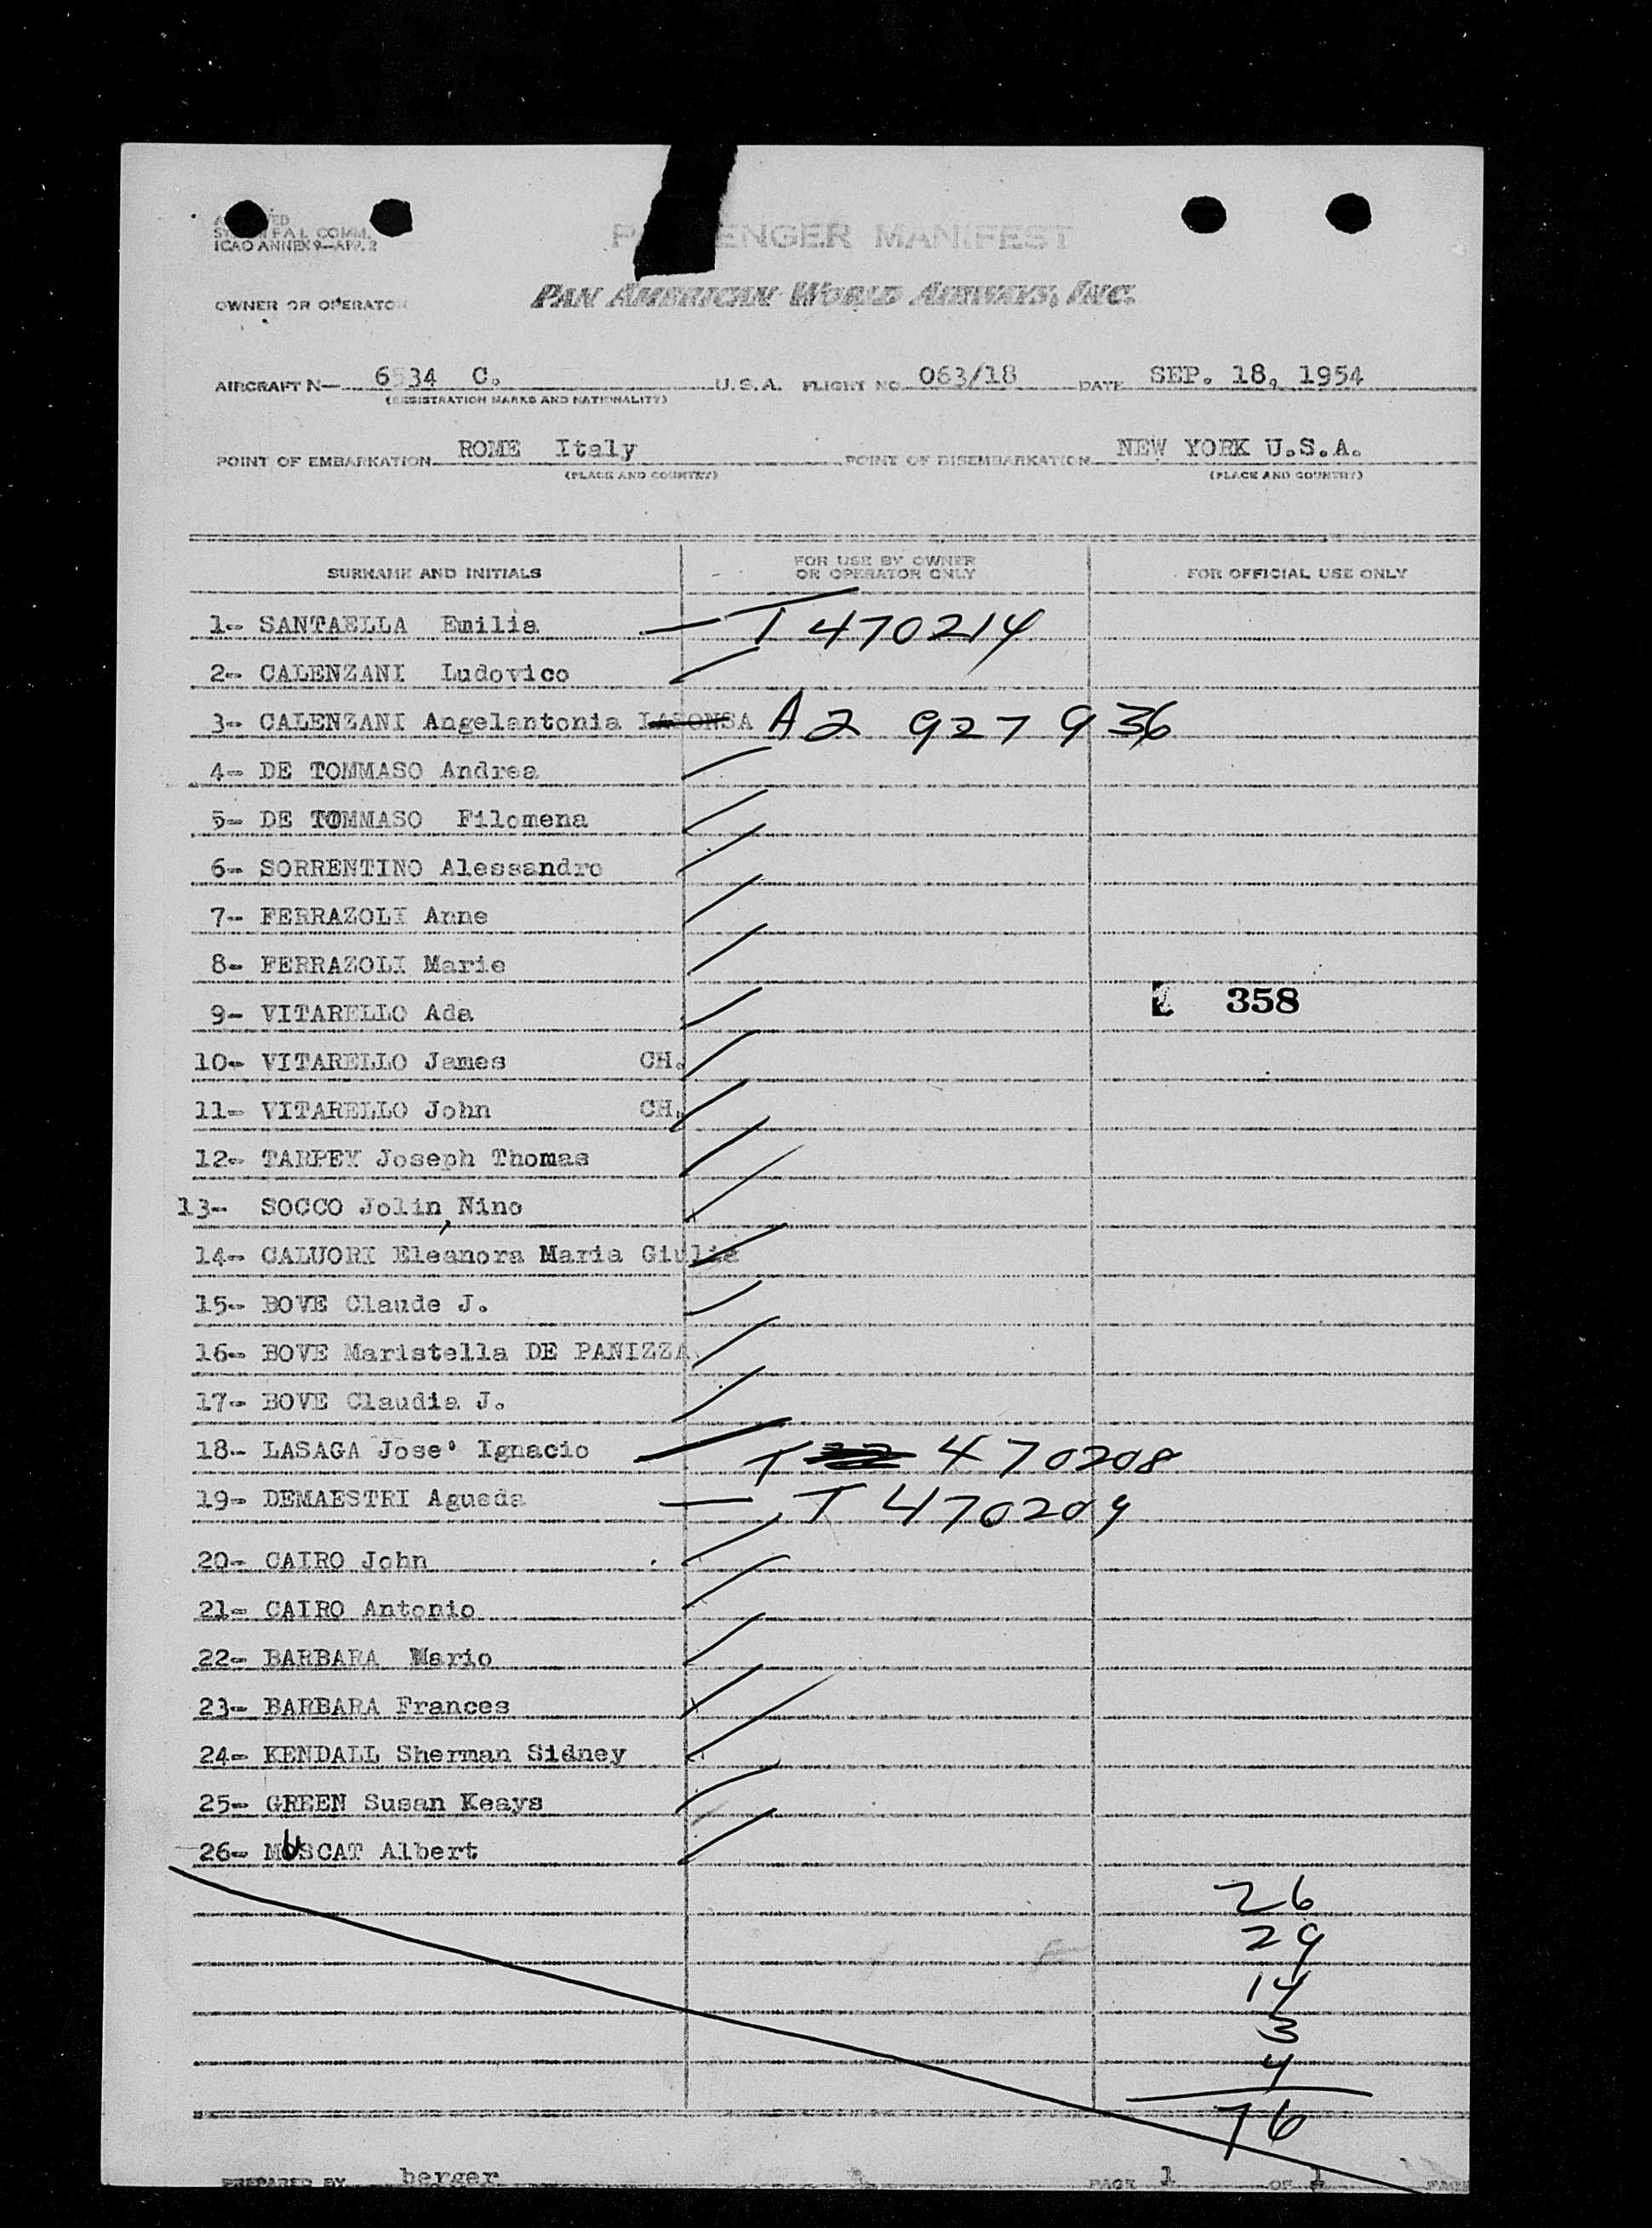 ICAO ANNEX 9—APP. 2
PASSENGER MANIFEST
OWNER OR OPERATOR PAN AMERICAN WORLD AIRWAYS, INC.
AIRCRAFT N— 6534 C. U.S.A. FLIGHT NO. 063/18 DATE SEP. 18, 1954
(REGISTRATION MARKS AND NATIONALITY)
POINT OF EMBARKATION ROME Italy POINT OF DISEMBARKATION NEW YORK U.S.A.
(PLACE AND COUNTRY) (PLACE AND COUNTRY)
SURNAME AND INITIALS FOR USE BY OWNER OR OPERATOR ONLY FOR OFFICIAL USE ONLY
1- SANTAELLA Emilia T 470214
2- CALENZANI Ludovico
3- CALENZANI Angelantonia A2 927 936
4- DE TOMMASO Andrea
5- DE TOMMASO Filomena
6- SORRENTINO Alessandro
7- FERRAZOLI Anne
8- FERRAZOLI Marie
9- VITARELLO Ada 358
10- VITARELLO James CH.
11- VITARELLO John CH.
12- TARPEY Joseph Thomas
13- SOCCO Jolin, Nino
14- CALUORI Eleanora Maria Giulia
15- BOVE Claude J.
16- BOVE Maristella DE PANIZZA
17- BOVE Claudia J.
18- LASAGA Jose' Ignacio T 470208
19- DEMAESTRI Agueda T 470209
20- CAIRO John
21- CAIRO Antonio
22- BARBARA Mario
23- BARBARA Frances
24- KENDALL Sherman Sidney
25- GREEN Susan Keays
26- MUSCAT Albert
26
29
14
3
4
76
PREPARED BY berger PAGE 1 OF 1